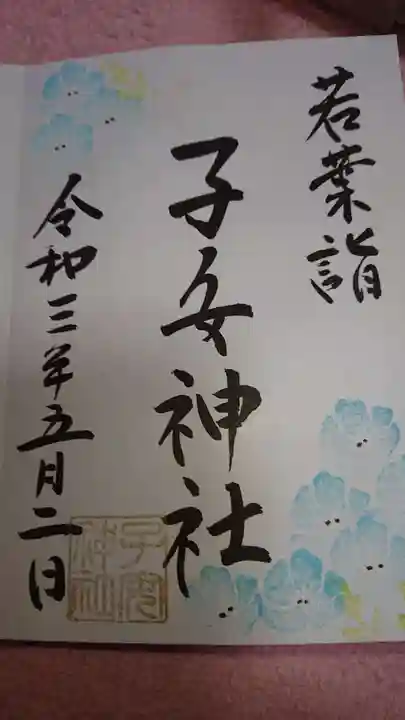 若葉詣
子安神社
令和三年五月二日
子安神社